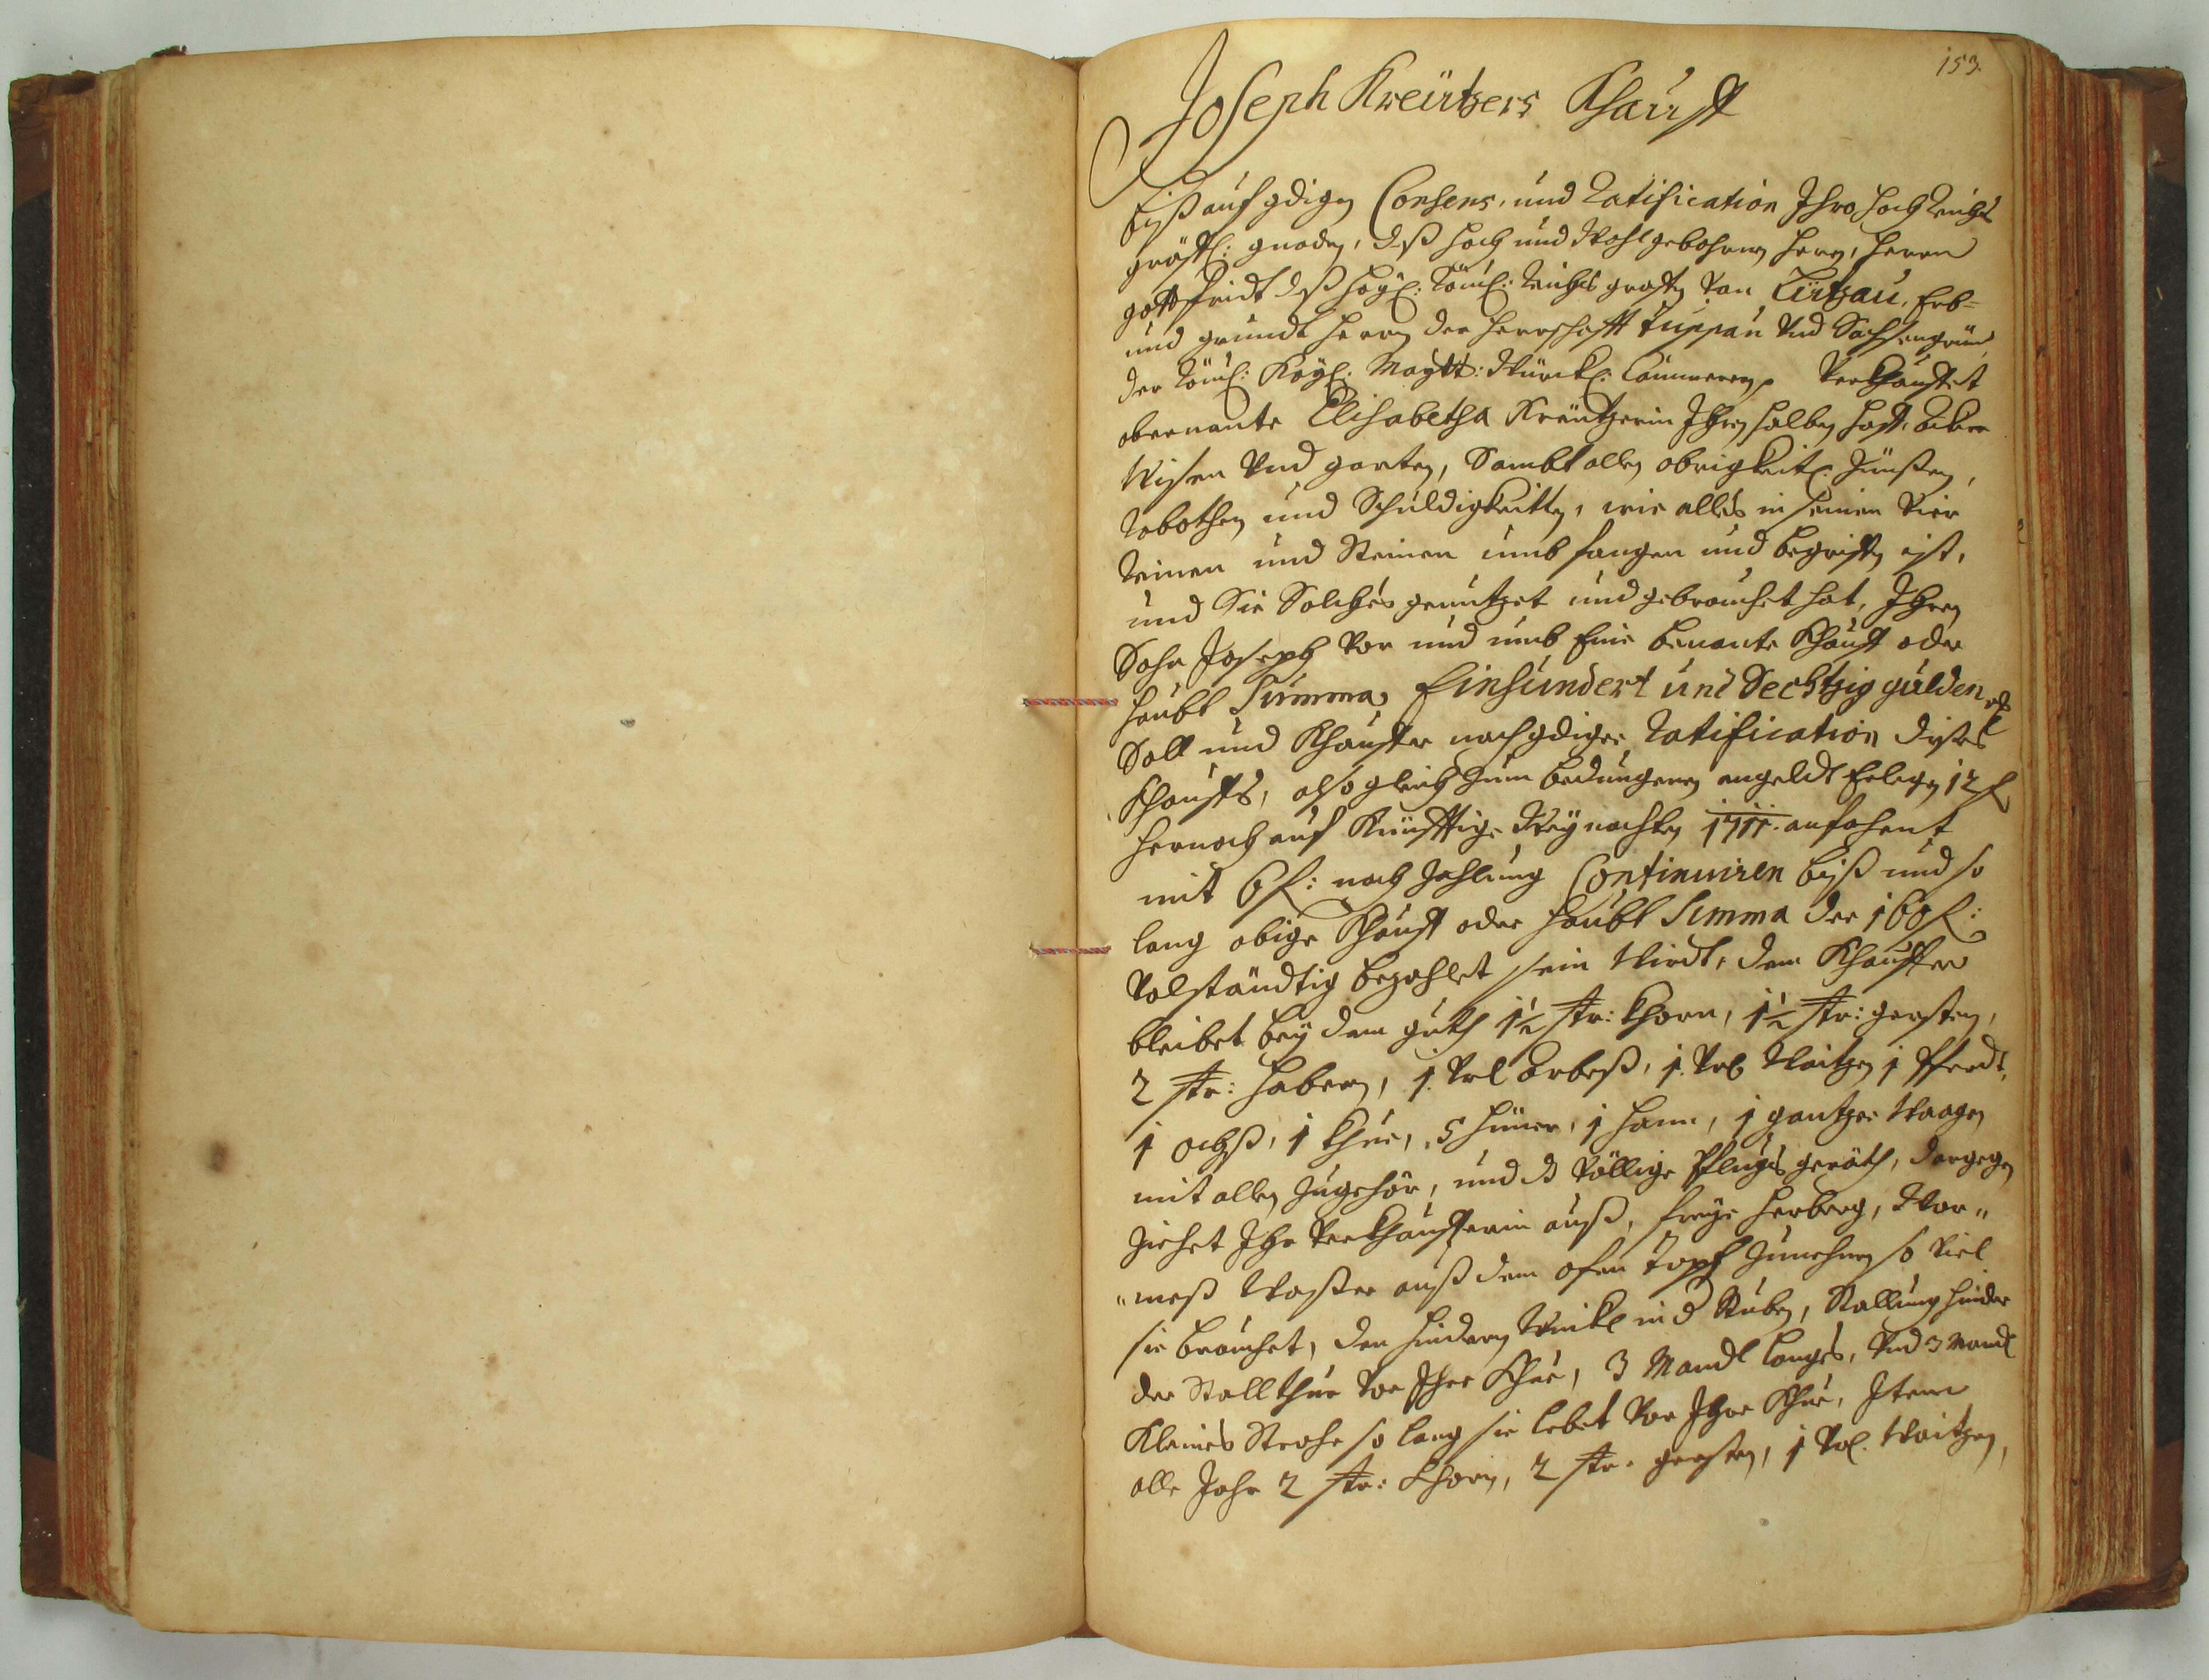 153.
Joseph Kreützers Khauff
Biß auf gdigen Consens, und Ratification Ihro hoch Reichs
gräffl: gnaden, deß hoch und Wohlgebohrnen Herrn, Herrn
gottfridt deß heyl: Röm: Reichs graffen von Lützau, Erb=
und grundt Herrn der Herrschafft Duppau und Sachsengrün,
der Röm: Kayl: Maytt: Würckl: Cämmerern, Verkhauffet
obernante Elisabetha Kreützerin Ihren halben hoff, äcker
Wisen Vnd garten, Sambt allen obrigkeitl: Zünßen,
Robothen und Schuldigkeitten, wie alles in seinen Vier
Reinen und Steinen umbfangen und begriffen ist,
und Sie Solches genutzet und gebrauchet hat, Ihren
Sohn Joseph vor und umb Eine benante Khauff oder
Haubt Summa, Einhundert und Sechtzig gulden,
Soll und Khauffer nach gdiger Ratification dises
Khauffs, also gleich zum bedungenen angeldt Erlegen 12 f
hernach auf Künfftige Weynachten 1711. anfahent
mit 6 f: nach Zahlung Continuiren biß und so
lang obige Khauff oder Haubt Summa der 160 f:
Volständtig bezahlet sein Wirdt, dem Khauffer
bleibet bey dem guth 1½ Str: Khorn, 1½ Str: gersten,
2 Str: Habern, 1. Vrl Erbeß, 1. Vrl Waitzen 1 Pferdt,
1 ochß, 1 Khue, 5 Hüner, 1 Hann, 1 gantzer Waagen
mit allen Zugehör, und d Völlige Pflugs geräth, dargegen
Ziehet Ihr Verkhaufferin auß, freye Herberg, War„
„meß Waßer auß dem ofen Topf Zunehmen so Viel
sie brauchet, den hindern Winkl in d Stuben, Stallung hinder
der Stallthür vor Ihre Khue, 3 Mandl Langes, Vnd 3 Mandl
Kleines Strohe so lang sie lebet vor Ihre Khue, Item
alle Jahr 2 Str: Khorn, 2 Str. gersten, 1 Vrl. Waitzen,